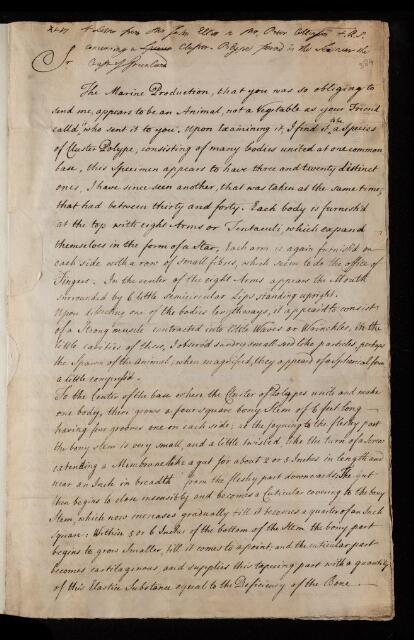 A Letter from Mr. John Ellis to Mr. Peter Collinson F.R.S.
concerning a Cluster-Polype, found in the Sea near the
Coast of Greenland
Sr
The Marine Production, that you was so obliging to
send me, appears to be an Animal, not a Vegitable as your Friend
call'd, who sent it to you. Upon Examining it, I find it to be a Species
of Cluster Polype, consisting of many bodies united at one common
base, this Specimen appears to have three and twenty distinct
ones, I have since seen another, that was taken at the same time,
that had between thirty and forty. Each body is furnish'd
at the top with eight Arms or Tentaculi, which expand
themselves in the form of a Star, Each arm is again furnish'd on
each side with a row of small fibres, which seem to do the office of
Fingers. In the center of the eight Arms appears the Mouth
surrounded by 6 little semicircular Lips standing upright.
Upon disecting one of the bodies lengthways, it appears to consist
of a Strong muscle contracted into little Waves or Wrinckles, in the
little cavities of these, I observd sundry small seed like particles, perhaps
the Spawn of the Animal, when magnified, they appeard of a Spherical form
a little compress'd.
To the Center of the base where the Cluster of Polypes unite and make
one body, there grows a four square bony Stem of 6 feet long
having four grooves one on each side; at the joyning to the fleshy part
the bony stem is very small, and a little twisted, like the turn of a Screw
extending a Membrane like a gut for about 2 or 3 Inches in length and
near an Inch in breadth from the fleshy part downwards. The gut
then begins to close insensibly and becomes a cuticular covering to the bony
Stem, which now increases gradually till it becomes a quarter of an Inch
square: Within 5 or 6 Inches of the bottom of the Stem the bony part
begins to grow Smaller, till it comes to a point, and the cuticular part
becomes cartilaginous, and supplies this tapering part with a quantity
of this Elastic Substance equal to the Deficiency of the Bone.